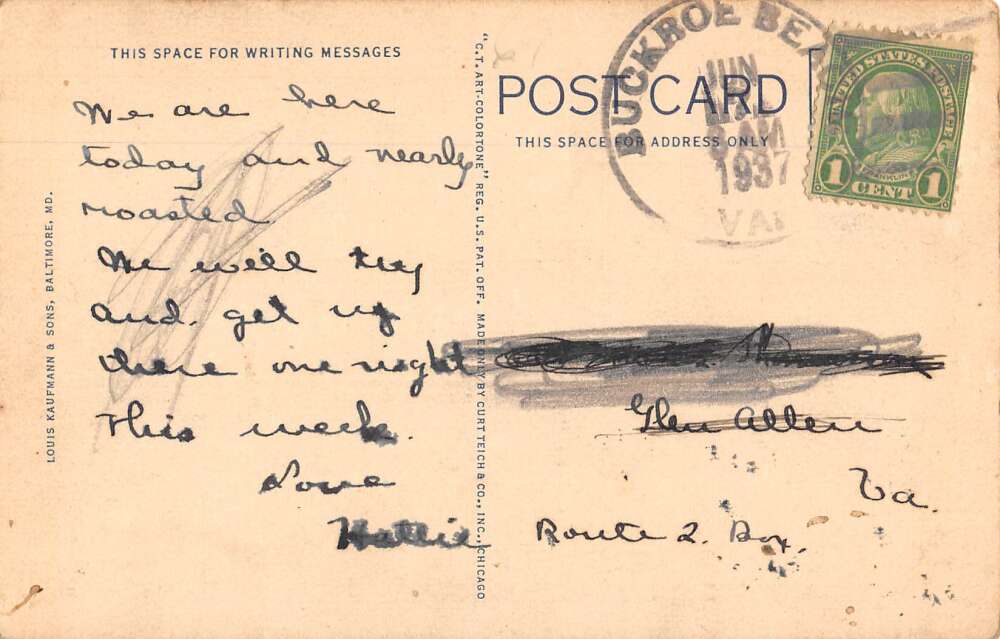 THIS SPACE FOR WRITING MESSAGES
We are here
today and nearly
roasted
We will try
and. get up
there one night
This week.
Love
Hattie
LOUIS KAUFMANN & SONS, BALTIMORE, MD.
"C.T. ART-COLORTONE" REG. U.S. PAT. OFF. MADE ONLY BY CURT TEICH & CO., INC., CHICAGO
POST CARD
THIS SPACE FOR ADDRESS ONLY
BUCKROE
JUN
AM
1937
VA
UNITED STATES POSTAGE
FRANKLIN
1 CENT 1
Glen Allen
Va.
Route 2. Box.